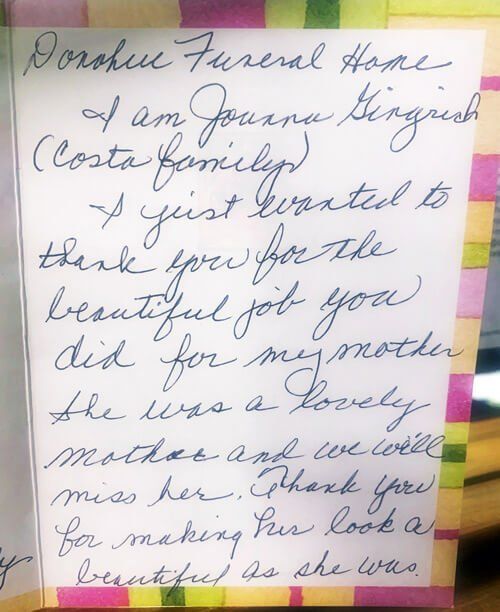 Donohue Funeral Home
I am Joanna Gingrich
(Costa family)
I just wanted to
thank you for the
beautiful job you
did for my mother
She was a lovely
mother and we will
miss her. Thank you
for making her look a
beautiful as she was.
y